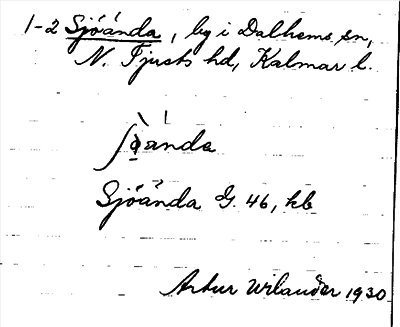 1-2 Sjöända, by i Dalhems sn,
N. Tjusts hd, Kalmar l.
Sjöända G. 46, kb
Artur Wilander 1930